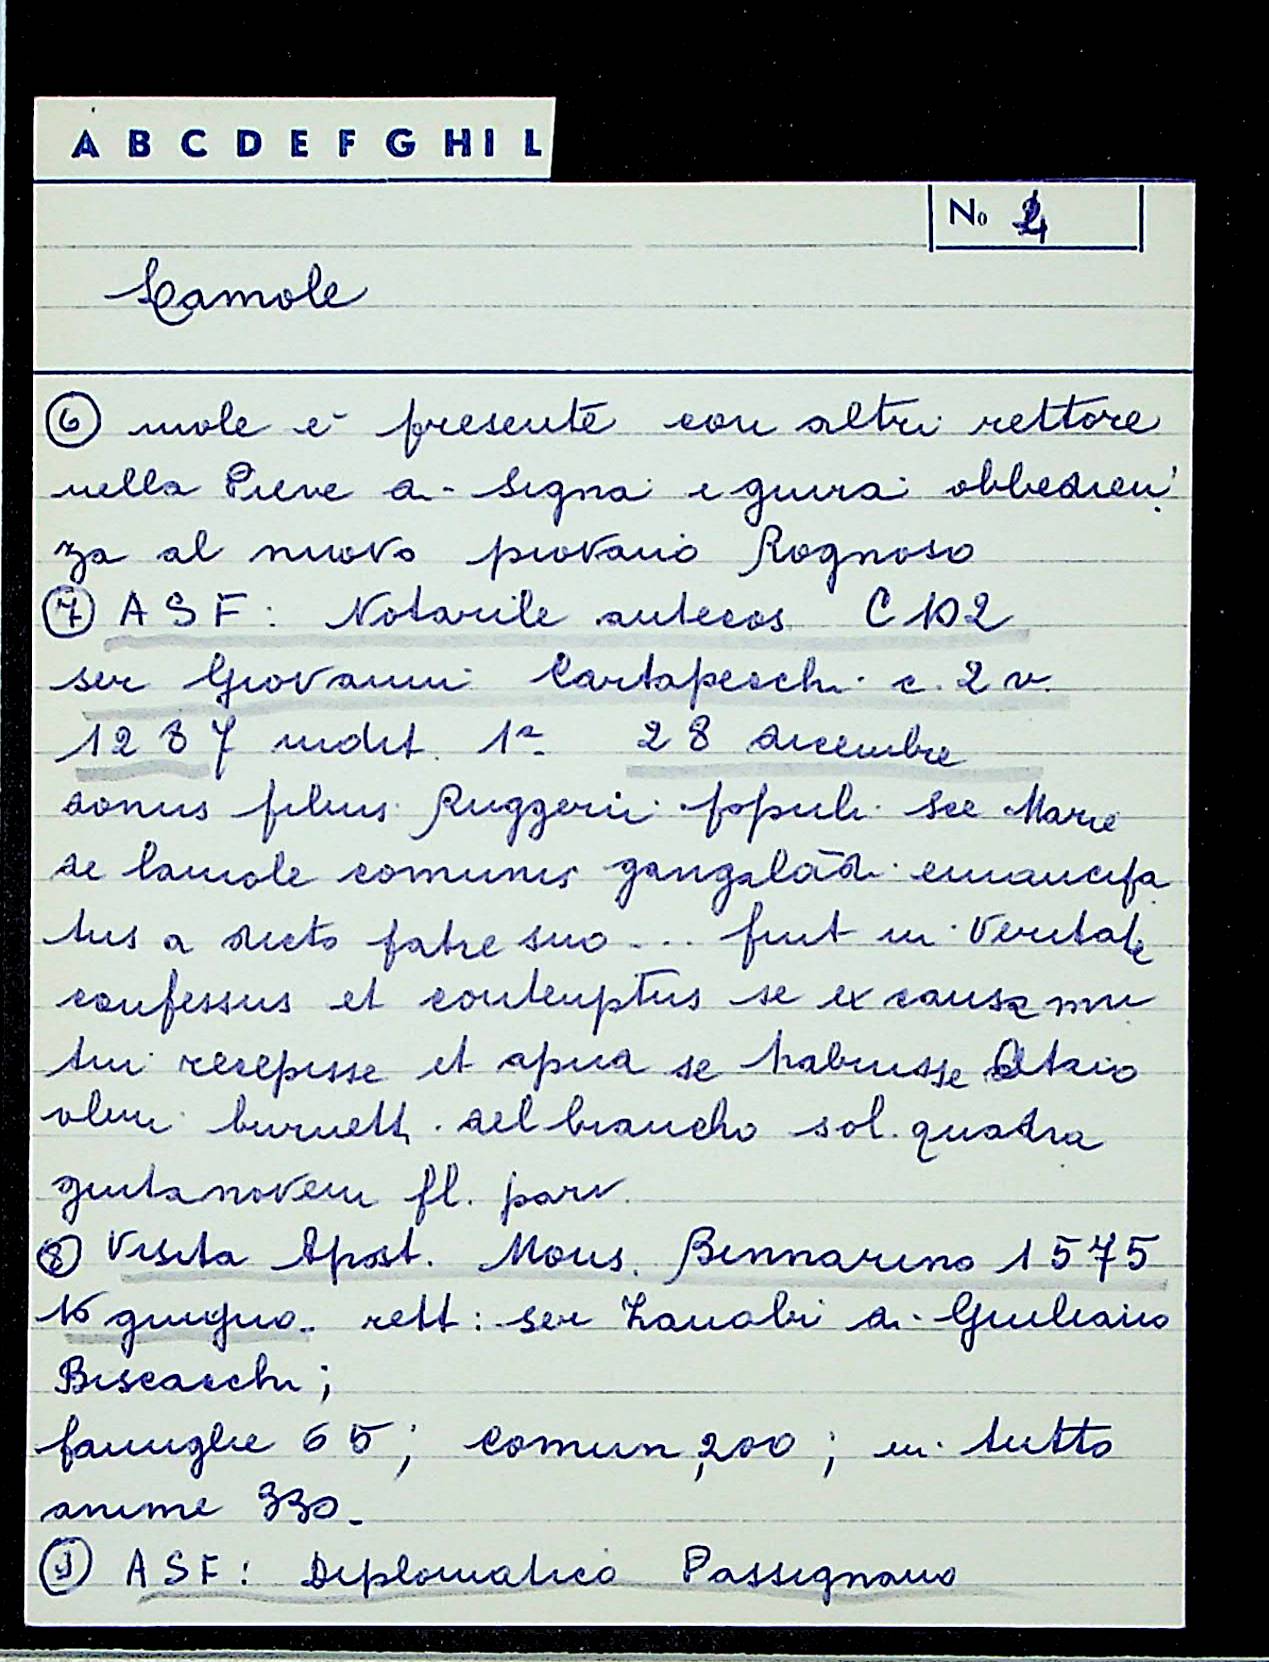 A B C D E F G H I L
No 4
Lamole
⑥ mole è presente con altri rettore
nella Pieve di Signa e giura obbedien
za al nuovo piovano Rognoso
⑦ ASF: Notarile antecos. C 102
ser Giovanni Cartapecchi c. 2 v.
1287 indit. 1ª 28 dicembre
donus filius Ruggerii populi See Marie
de lamole comunis gangalādi emancipa
tus a dicto patre suo ... fuit in veritate
confessus et contemptus se ex causa mu
tui recepisse et apud se habuisse
olim burnetti del brancho sol. quadra
gintanovem fl. parv.
⑧ Visita Apost. Mons. Binnarino 1575
16 giugno. rett: ser Zanobi di Giuliano
Biscacchi;
famiglie 65; comun, 200; in tutto
anime 330.
⑨ ASF: Diplomatico Passignano